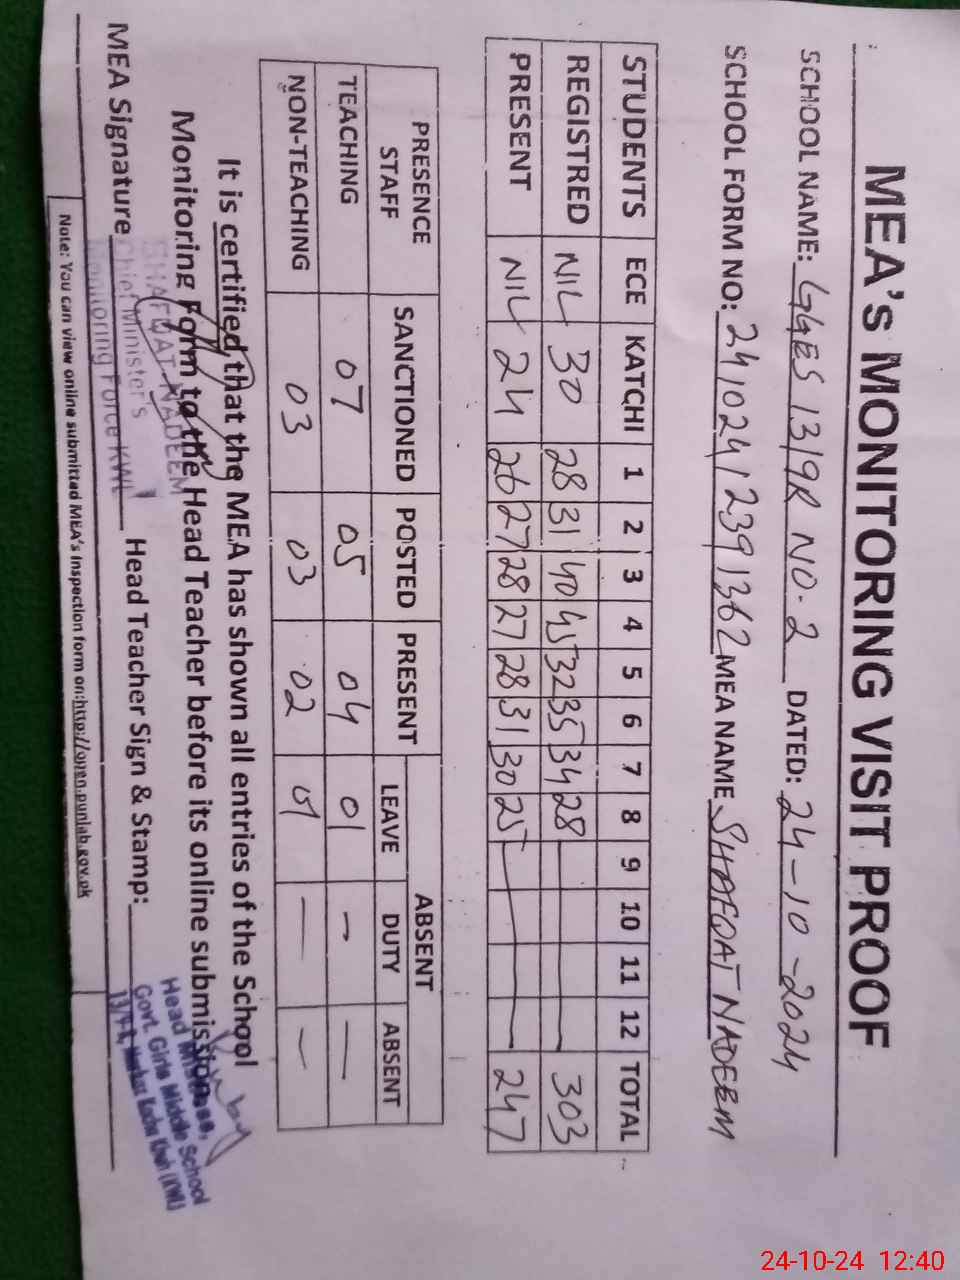 MEA's MONITORING VISIT PROOF
SCHOOL NAME: GGES 13/9R NO. 2 DATED: 24-10-2024
SCHOOL FORM NO: 241024/2391362 MEA NAME SHAFQAT NADEEM
STUDENTS ECE KATCHI 1 2 3 4 5 6 7 8 9 10 11 12 TOTAL
REGISTRED NIL 30 28 31 40 45 32 35 34 28 303
PRESENT NIL 24 26 27 28 27 28 31 30 25 247
PRESENCE STAFF SANCTIONED POSTED PRESENT ABSENT
LEAVE DUTY ABSENT
TEACHING 07 05 04 01 - —
NON-TEACHING 03 03 02 01 — —
It is certified that the MEA has shown all entries of the School
Monitoring Form to the Head Teacher before its online submission.
SHAFQAT NADEEM
Chief Minister's
Monitoring Force KWL
MEA Signature Head Teacher Sign & Stamp:
Head Mistress,
Govt. Girls Middle School
13/9-R,
Note: You can view online submitted MEA's Inspection form on:http://open.punjab.gov.pk
24-10-24 12:40